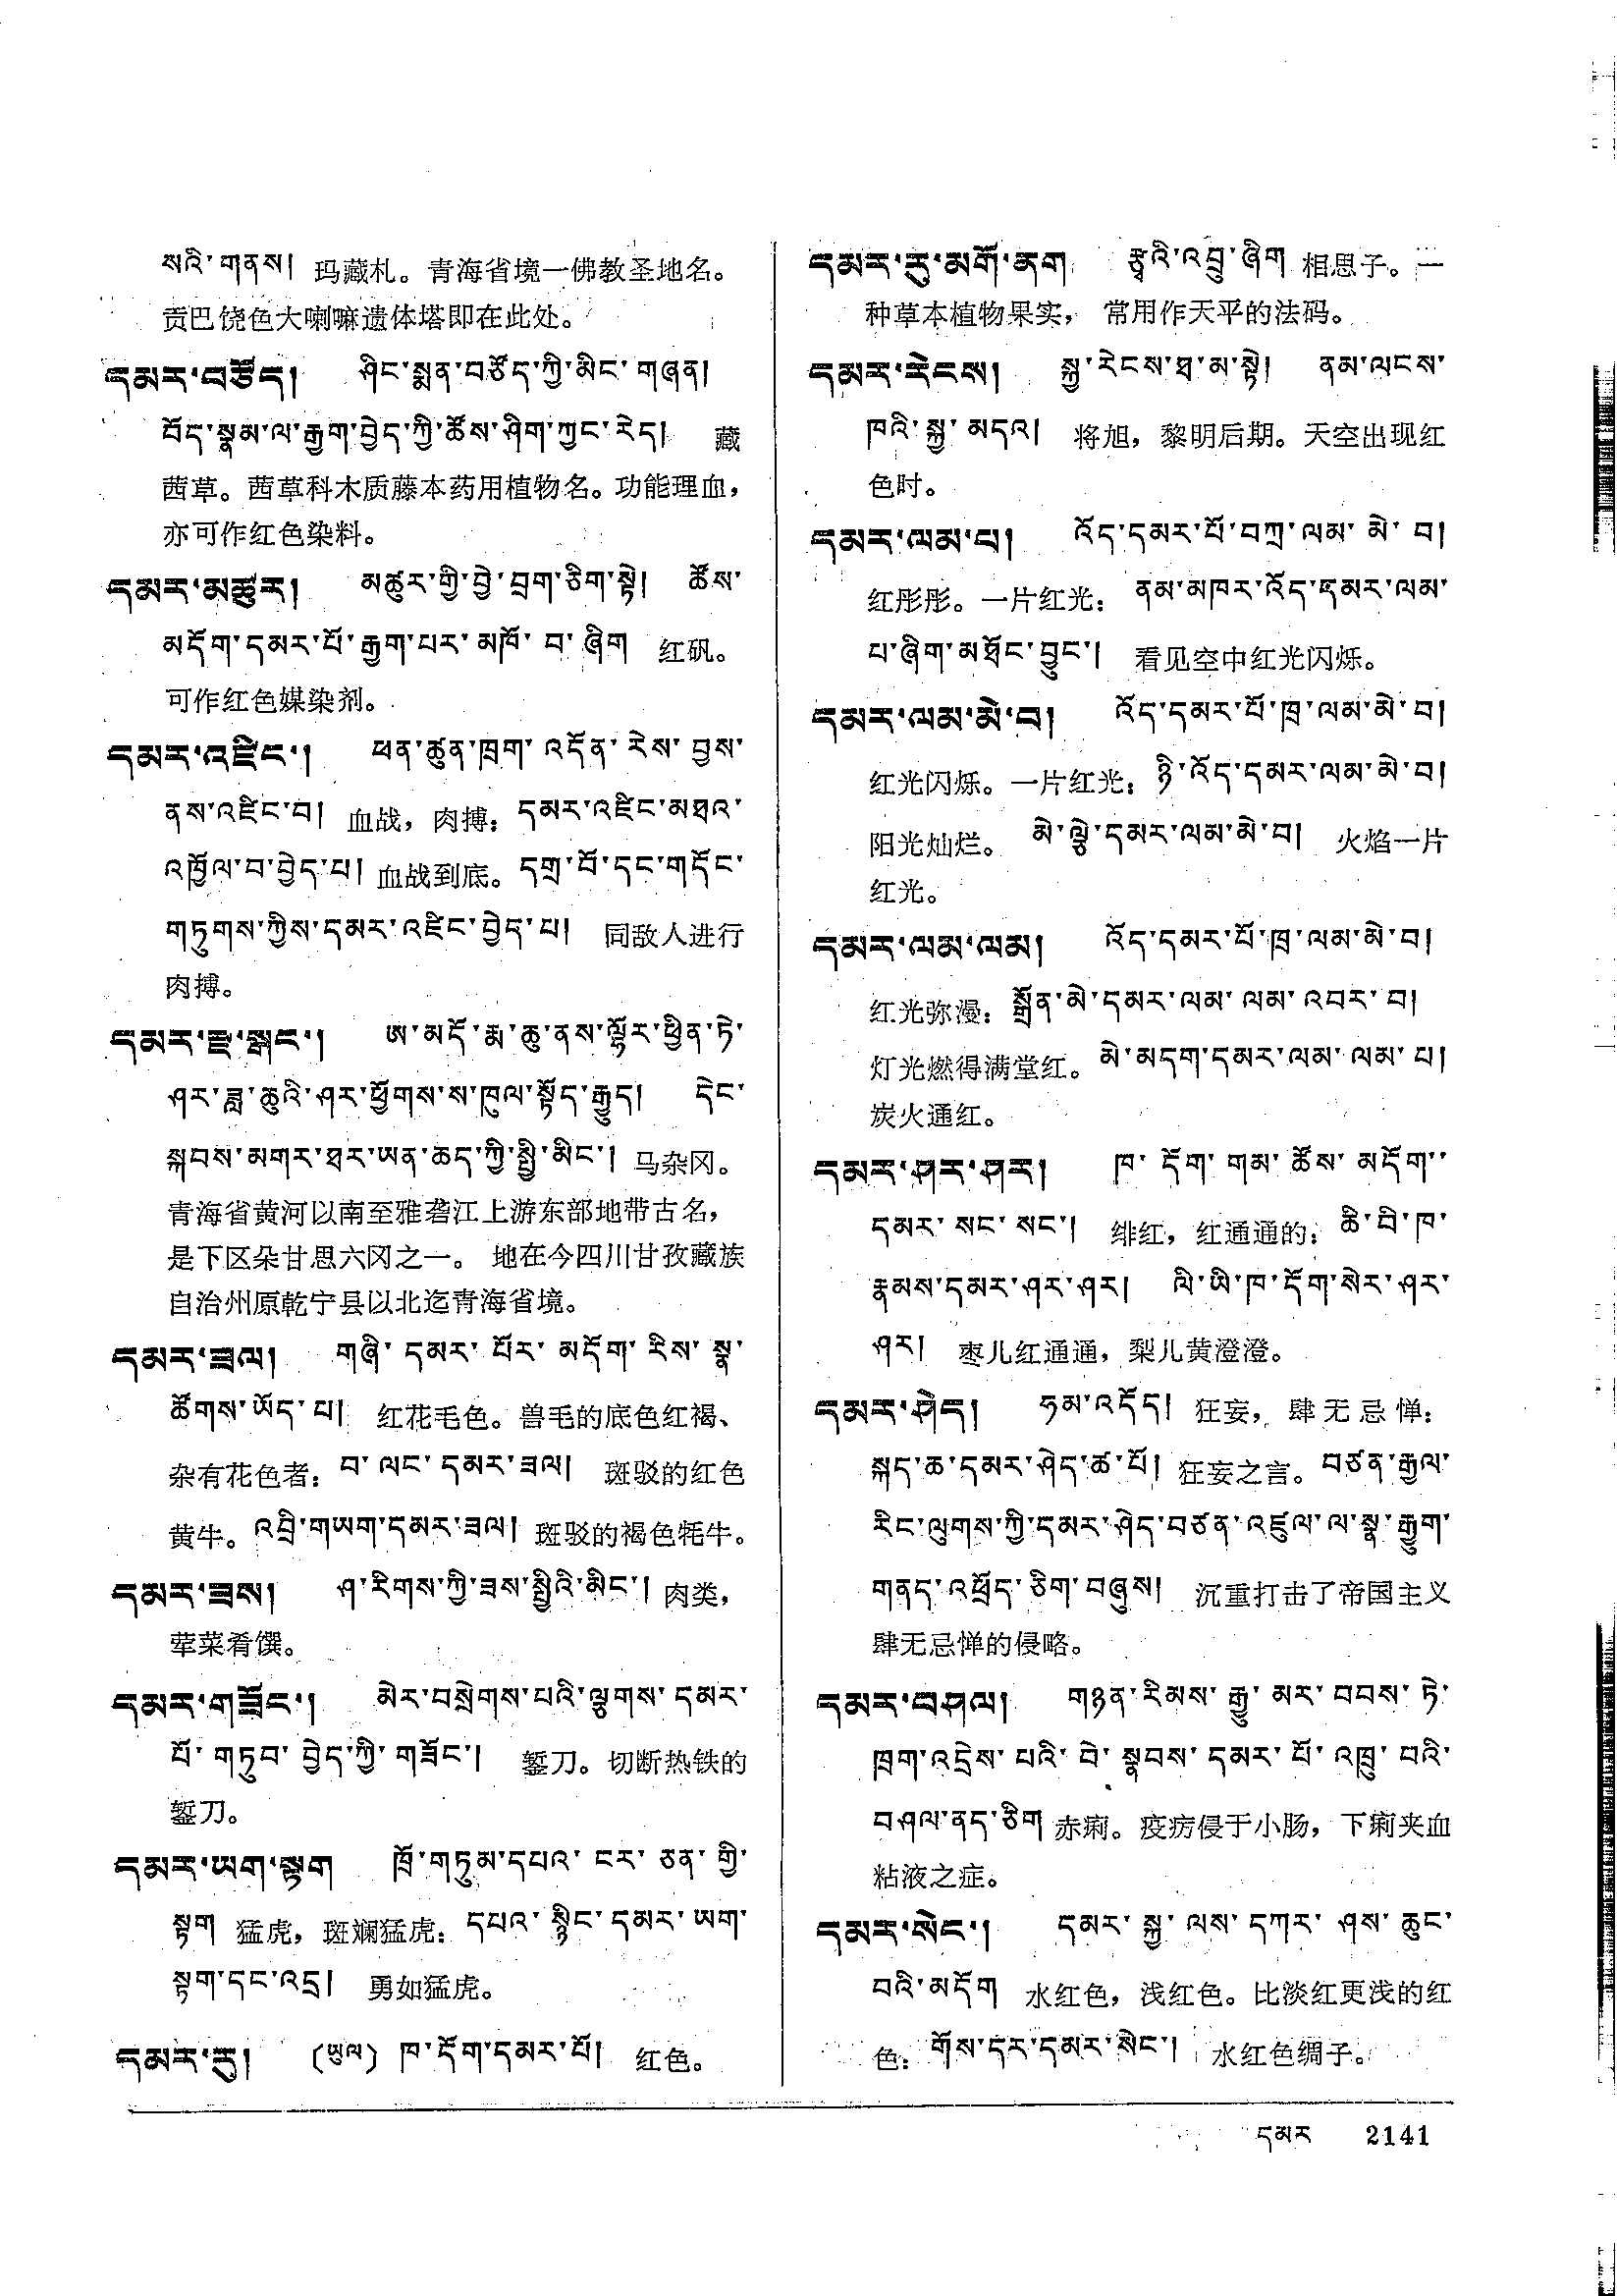 སའི་གནས། 玛藏札。青海省境一佛教圣地名。
贡巴饶色大喇嘛遗体塔即在此处。
དམར་བཙོད། ཤིང་སྨན་བཙོད་ཀྱི་མིང་གཞན།
བོད་སྣམ་ལ་རྒྱག་བྱེད་ཀྱི་ཚོས་ཤིག་ཀྱང་རེད། 藏
茜草。茜草科木质藤本药用植物名。功能理血，
亦可作红色染料。
དམར་མཚུར། མཚུར་གྱི་བྱེ་བྲག་ཅིག་སྟེ། ཚོས་
མདོག་དམར་པོ་རྒྱག་པར་མཁོ་བ་ཞིག 红矾。
可作红色媒染剂。
དམར་འཛིང་། ཕན་ཚུན་ཁྲག་འདོན་རེས་བྱས་
ནས་འཛིང་བ། 血战，肉搏：དམར་འཛིང་མཐའ་
འཁྱོལ་བ་བྱེད་པ། 血战到底。དགྲ་བོ་དང་གདོང་
གཏུགས་ཀྱིས་དམར་འཛིང་བྱེད་པ། 同敌人进行
肉搏。
དམར་རྫ་སྒང་། ཨ་མདོ་རྨ་ཆུ་ནས་ལྷོར་ཕྱིན་ཏེ་
ཤར་ཟླ་ཆུའི་ཤར་ཕྱོགས་ས་ཁུལ་སྟོད་རྒྱུད། དེང་
སྐབས་མགར་ཐར་ཡན་ཆད་ཀྱི་སྤྱི་མིང་། 马杂冈。
青海省黄河以南至雅砻江上游东部地带古名，
是下区朵甘思六冈之一。 地在今四川甘孜藏族
自治州原乾宁县以北迄青海省境。
དམར་ཟལ། གཞི་དམར་པོར་མདོག་རིས་སྣ་
ཚོགས་ཡོད་པ། 红花毛色。兽毛的底色红褐、
杂有花色者：བ་ལང་དམར་ཟལ། 斑驳的红色
黄牛。འབྲི་གཡག་དམར་ཟལ། 斑驳的褐色牦牛。
དམར་ཟས། ཤ་རིགས་ཀྱི་ཟས་སྤྱིའི་མིང་། 肉类，
荤菜肴馔。
དམར་གཟོང་། མེར་བསྲེགས་པའི་ལྕགས་དམར་
པོ་གཏུབ་བྱེད་ཀྱི་གཟོང་། 錾刀。切断热铁的
錾刀。
དམར་ཡག་སྟག ཁྲོ་གཏུམ་དཔའ་ངར་ཅན་གྱི་
སྟག 猛虎，斑斓猛虎：དཔའ་སྙིང་དམར་ཡག་
སྟག་དང་འདྲ། 勇如猛虎。
དམར་རུ། (ཡུལ) ཁ་དོག་དམར་པོ། 红色。
དམར་རུ་མགོ་ནག རྩྭའི་འབྲུ་ཞིག 相思子。一
种草本植物果实， 常用作天平的法码。
དམར་རེངས། སྐྱ་རེངས་ཐ་མ་སྟེ། ནམ་ལངས་
ཁའི་སྐྱ་མདའ། 将旭，黎明后期。天空出现红
色时。
དམར་ལམ་པ། འོད་དམར་པོ་བཀྲ་ལམ་མེ་བ།
红彤彤。一片红光：ནམ་མཁར་འོད་དམར་ལམ་
པ་ཞིག་མཐོང་བྱུང་། 看见空中红光闪烁。
དམར་ལམ་མེ་བ། འོད་དམར་པོ་ཁྲ་ལམ་མེ་བ།
红光闪烁。一片红光：ཉི་འོད་དམར་ལམ་མེ་བ།
阳光灿烂。 མེ་ལྕེ་དམར་ལམ་མེ་བ། 火焰一片
红光。
དམར་ལམ་ལམ། འོད་དམར་པོ་ཁྲ་ལམ་མེ་བ།
红光弥漫：སྒྲོན་མེ་དམར་ལམ་ལམ་འབར་བ།
灯光燃得满堂红。མེ་མདག་དམར་ལམ་ལམ་པ།
炭火通红。
དམར་ཤར་ཤར། ཁ་དོག་གམ་ཚོས་མདོག་
དམར་སང་སང་། 绯红，红通通的：ཆི་བི་ཁ་
རྣམས་དམར་ཤར་ཤར། ལི་ཡི་ཁ་དོག་སེར་ཤར་
ཤར། 枣儿红通通，梨儿黄澄澄。
དམར་ཤེད། ཧམ་འདོད། 狂妄， 肆无忌惮：
སྐད་ཆ་དམར་ཤེད་ཚ་པོ། 狂妄之言。བཙན་རྒྱལ་
རིང་ལུགས་ཀྱི་དམར་ཤེད་བཙན་འཛུལ་ལ་སྣ་རྒྱུག་
གནད་འཕྲོད་ཅིག་བཞུས། 沉重打击了帝国主义
肆无忌惮的侵略。
དམར་བཤལ། གཉན་རིམས་རྒྱུ་མར་བབས་ཏེ་
ཁྲག་འདྲེས་པའི་བེ་སྣབས་དམར་པོ་འཁྲུ་བའི་
བཤལ་ནད་ཅིག 赤痢。疫疠侵于小肠，下痢夹血
粘液之症。
དམར་སེང་། དམར་སྐྱ་ལས་དཀར་ཤས་ཆུང་
བའི་མདོག 水红色，浅红色。比淡红更浅的红
色：གོས་དར་དམར་སེང་། 水红色绸子。
དམར 2141